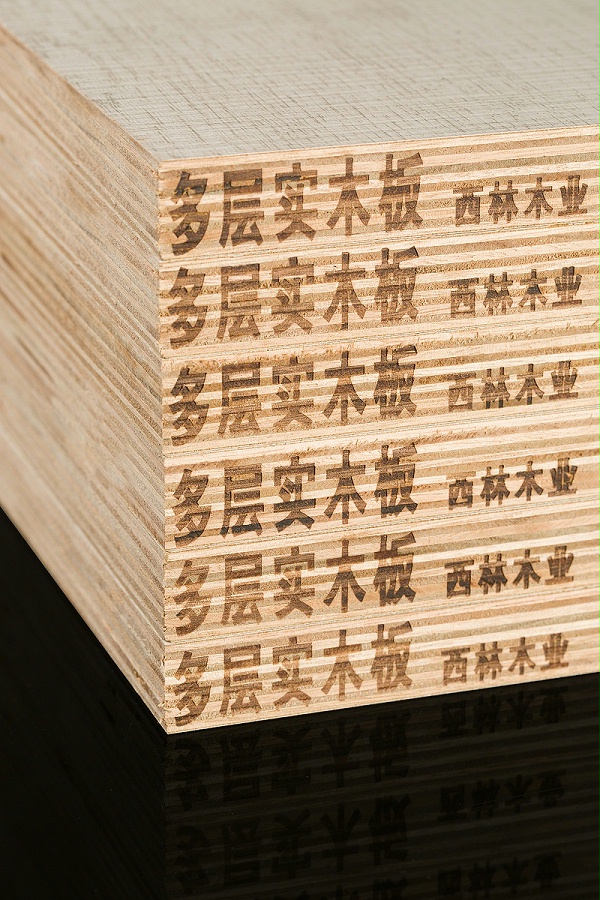 多层实木板 西林木业
多层实木板 西林木业
多层实木板 西林木业
多层实木板 西林木业
多层实木板 西林木业
多层实木板 西林木业